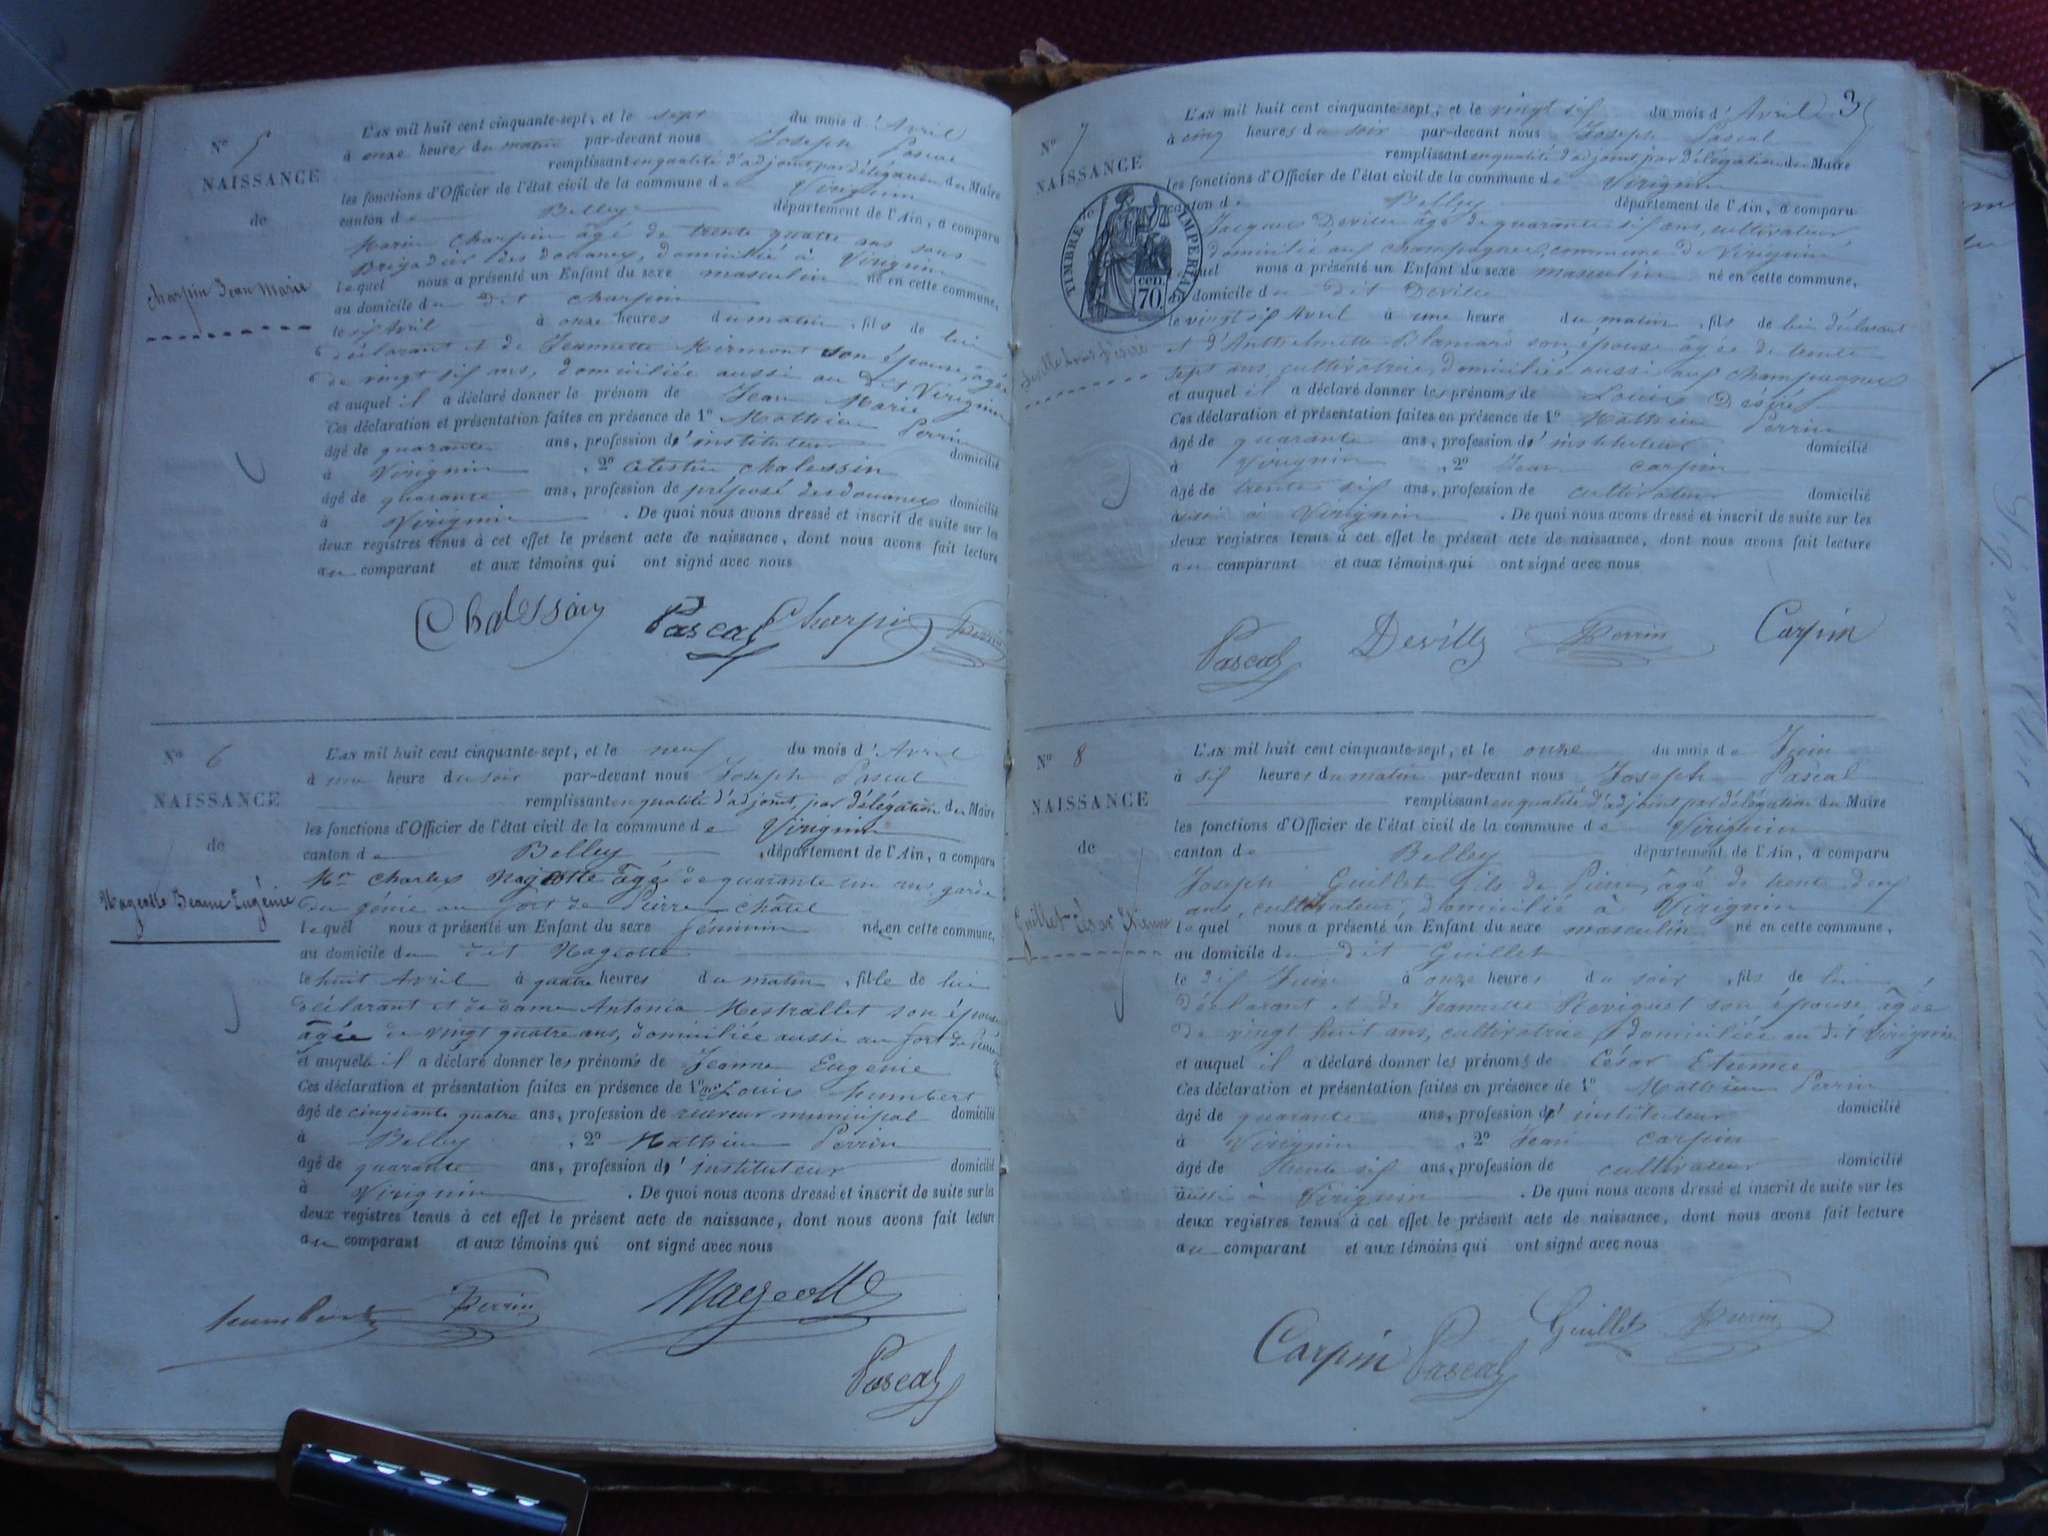 N° 5
NAISSANCE
de
Charpin Jean Marie
L'AN mil huit cent cinquante-sept, et le sept du mois d'Avril
à onze heures du matin par-devant nous Joseph Pascal
remplissant en qualité d'adjoint, par délégation du Maire
les fonctions d'Officier de l'état civil de la commune de Virignin
canton de Belley département de l'Ain, a comparu
Marin Charpin âgé de trente quatre ans sous-
Brigadier des Douanes, domicilié à Virignin
lequel nous a présenté un Enfant du sexe masculin né en cette commune,
au domicile du dit Charpin
le six Avril à onze heures du matin, fils de lui
déclarant et de Jeannette son épouse, âgée
de vingt six ans, domiciliée aussi au dit Virignin
et auquel il a déclaré donner le prénom de Jean Marie
Ces déclaration et présentation faites en présence de 1° Mathieu Perrin
âgé de quarante ans, profession d'instituteur domicilié
à Virignin, 2° Célestin Chalessin
âgé de quarante ans, profession de préposé des douanes domicilié
à Virignin. De quoi nous avons dressé et inscrit de suite sur les
deux registres tenus à cet effet le présent acte de naissance, dont nous avons fait lecture
au comparant et aux témoins qui ont signé avec nous
Pascal Charpin Perrin
N° 6
NAISSANCE
de
Mageotte Jeanne Eugénie
L'AN mil huit cent cinquante-sept, et le neuf du mois d'Avril
à une heure du soir par-devant nous Joseph Pascal
remplissant en qualité d'adjoint, par délégation du Maire
les fonctions d'Officier de l'état civil de la commune de Virignin
canton de Belley, département de l'Ain, a comparu
Mr Charles Mageotte âgé de quarante un ans, garde
du génie au fort de Pierre Châtel
lequel nous a présenté un Enfant du sexe féminin née en cette commune,
au domicile du dit Mageotte
le huit Avril à quatre heures du matin, fille de lui
déclarant et de dame Antonia Mestrallet son épouse
âgée de vingt quatre ans, domiciliée aussi au fort de Pierre
et auquel il a déclaré donner les prénoms de Jeanne Eugénie
Ces déclaration et présentation faites en présence de 1° Mr Louis humbert
âgé de cinquante quatre ans, profession de receveur municipal domicilié
à Belley, 2° Mathieu Perrin
âgé de quarante ans, profession d'instituteur domicilié
à Virignin. De quoi nous avons dressé et inscrit de suite sur les
deux registres tenus à cet effet le présent acte de naissance, dont nous avons fait lecture
au comparant et aux témoins qui ont signé avec nous
humbert Perrin Mageotte
Pascal
3
N° 7
NAISSANCE
TIMBRE IMPERIAL
CEN. 70
L'AN mil huit cent cinquante-sept, et le vingt six du mois d'Avril
à cinq heures du soir par-devant nous Joseph Pascal
remplissant en qualité d'adjoint par délégation du Maire
les fonctions d'Officier de l'état civil de la commune de Virignin
canton de Belley département de l'Ain, a comparu
Jacques Deville âgé de quarante six ans, cultivateur,
domicilié aux Champagnes, commune de Virignin
lequel nous a présenté un Enfant du sexe masculin né en cette commune,
domicile du dit Deville
le vingt six Avril à une heure du matin, fils de lui déclarant
et d'Anthelmette son épouse âgée de trente
sept ans, cultivatrice, domiciliée aussi aux Champagnes
et auquel il a déclaré donner les prénoms de Louis Désiré
Ces déclaration et présentation faites en présence de 1° Mathieu Perrin
âgé de quarante ans, profession d'instituteur domicilié
à Virignin, 2° Jean Carpin
âgé de trente six ans, profession de cultivateur domicilié
aussi à Virignin. De quoi nous avons dressé et inscrit de suite sur les
deux registres tenus à cet effet le présent acte de naissance, dont nous avons fait lecture
au comparant et aux témoins qui ont signé avec nous
Pascal Deville Perrin Carpin
N° 8
NAISSANCE
de
Guillet César Etienne
L'AN mil huit cent cinquante-sept, et le onze du mois de Juin
à six heures du matin par-devant nous Joseph Pascal
remplissant en qualité d'adjoint par délégation du Maire
les fonctions d'Officier de l'état civil de la commune de Virignin
canton de Belley département de l'Ain, a comparu
Joseph Guillet fils de Pierre, âgé de trente deux
ans, cultivateur, domicilié à Virignin
lequel nous a présenté un Enfant du sexe masculin né en cette commune,
au domicile du dit Guillet
le dix Juin à onze heures du soir, fils de lui
déclarant et de Jeannette Reviquet son épouse, âgée
de vingt huit ans, cultivatrice, domiciliée au dit Virignin
et auquel il a déclaré donner les prénoms de César Etienne
Ces déclaration et présentation faites en présence de 1° Mathieu Perrin
âgé de quarante ans, profession d'instituteur domicilié
à Virignin, 2° Jean Carpin
âgé de trente six ans, profession de cultivateur domicilié
aussi à Virignin. De quoi nous avons dressé et inscrit de suite sur les
deux registres tenus à cet effet le présent acte de naissance, dont nous avons fait lecture
au comparant et aux témoins qui ont signé avec nous
Carpin Pascal Guillet Perrin